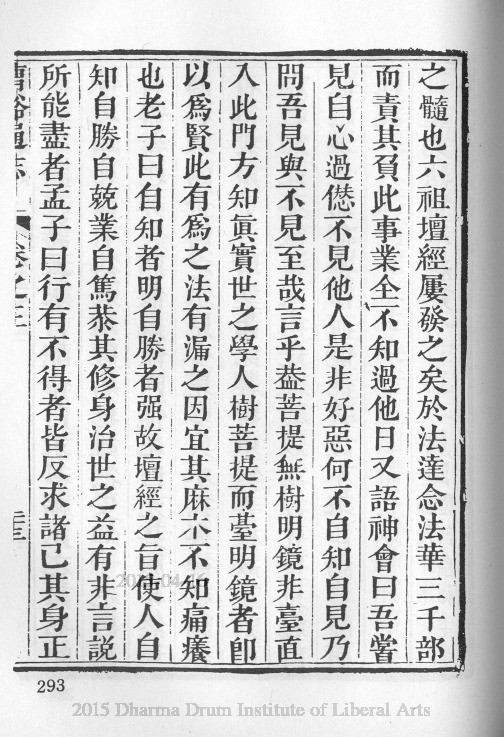 之髓也六祖壇經屢發之矣於法達念法華三千部
而責其負此事業全不知過他日又語神會曰吾嘗
見自心過愆不見他人是非好惡何不自知自見乃
問吾見與不見至哉言乎葢菩提無樹明鏡非臺直
入此門方知眞實世之學人樹菩提而臺明鏡者卽
以爲賢此有爲之法有漏之因宜其麻木不知痛癢
也老子曰自知者明自勝者强故壇經之旨使人自
知自勝自兢業自篤恭其修身治世之益有非言說
所能盡者孟子曰行有不得者皆反求諸己其身正
卷之三
293
2015 Dharma Drum Institute of Liberal Arts